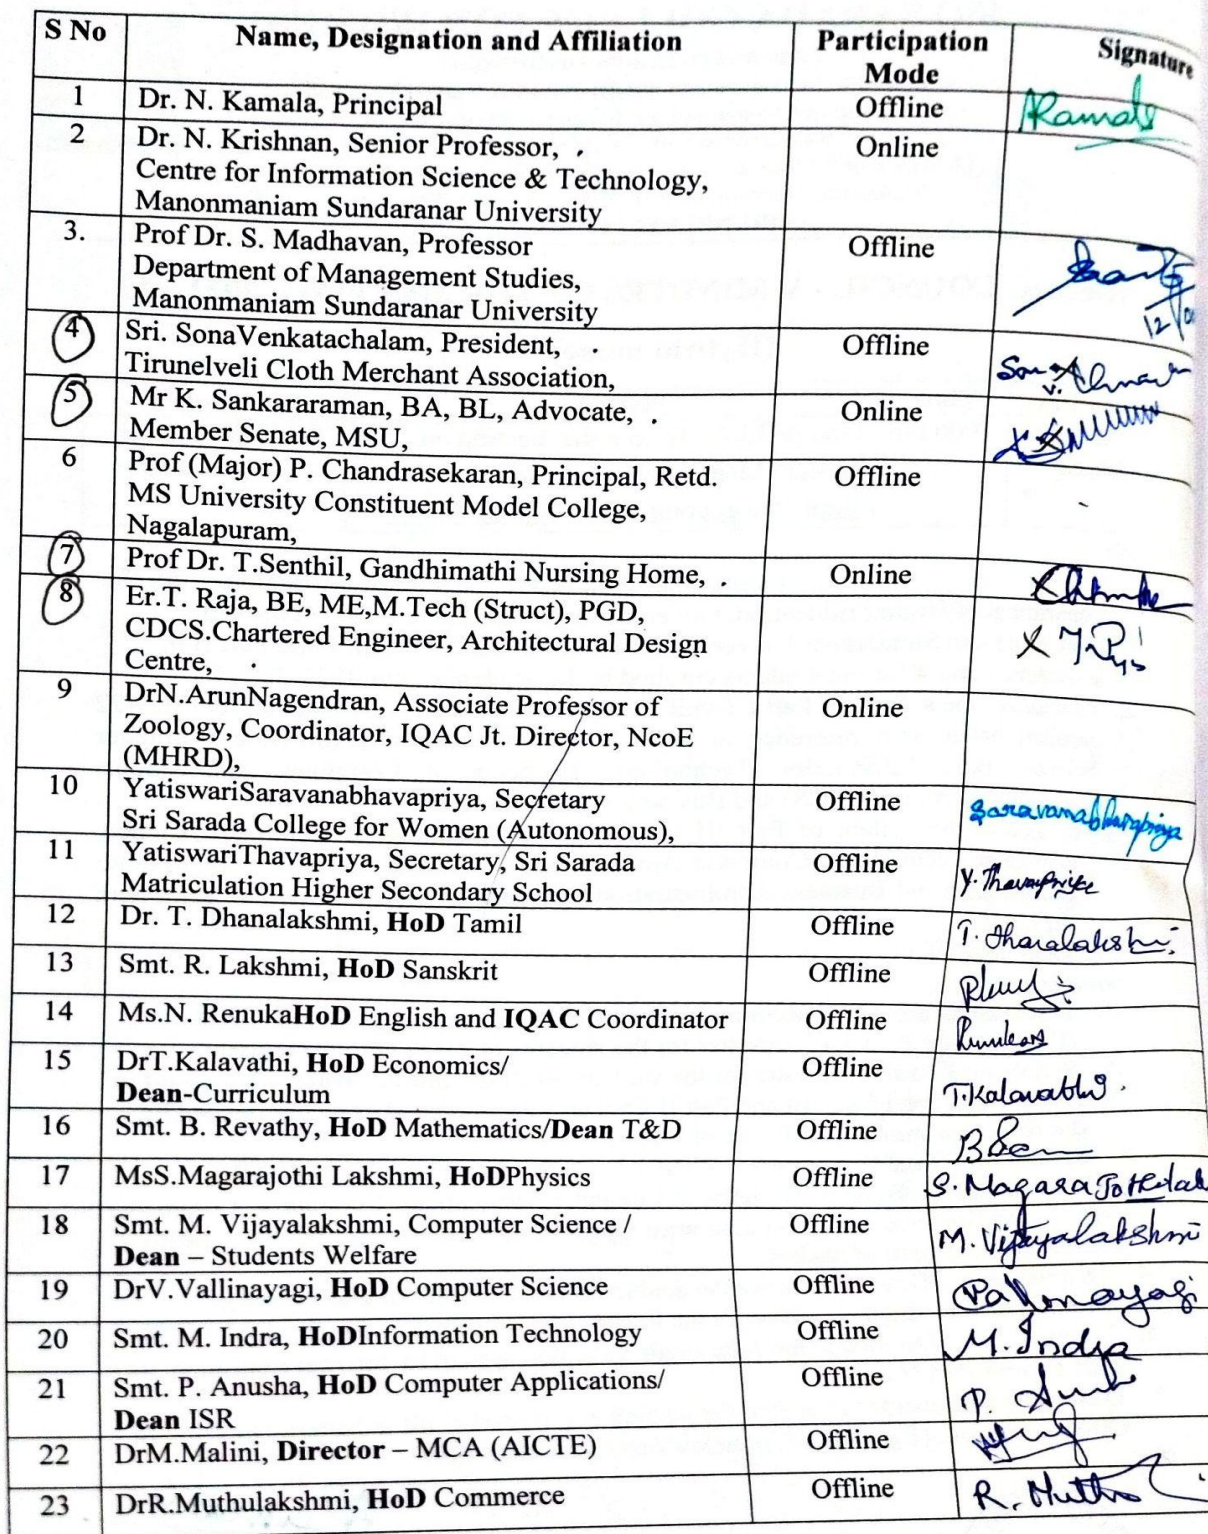 S No Name, Designation and Affiliation Participation Signature
Mode
1 Dr. N. Kamala, Principal Offline
2 Dr. N. Krishnan, Senior Professor, . Online
Centre for Information Science & Technology,
Manonmaniam Sundaranar University
3. Prof Dr. S. Madhavan, Professor Offline
Department of Management Studies,
Manonmaniam Sundaranar University
4 Sri. SonaVenkatachalam, President, Offline
Tirunelveli Cloth Merchant Association,
5 Mr K. Sankararaman, BA, BL, Advocate, . Online
Member Senate, MSU,
6 Prof (Major) P. Chandrasekaran, Principal, Retd. Offline
MS University Constituent Model College,
Nagalapuram,
7 Prof Dr. T.Senthil, Gandhimathi Nursing Home, . Online
8 Er.T. Raja, BE, ME,M.Tech (Struct), PGD, Offline
CDCS.Chartered Engineer, Architectural Design
Centre, .
9 DrN.ArunNagendran, Associate Professor of Online
Zoology, Coordinator, IQAC Jt. Director, NcoE
(MHRD),
10 YatiswariSaravanabhavapriya, Secretary Offline Saravanabhavapriya
Sri Sarada College for Women (Autonomous),
11 YatiswariThavapriya, Secretary, Sri Sarada Offline Y. Thavapriya
Matriculation Higher Secondary School
12 Dr. T. Dhanalakshmi, HoD Tamil Offline T. Dhanalakshmi
13 Smt. R. Lakshmi, HoD Sanskrit Offline
14 Ms.N. RenukaHoD English and IQAC Coordinator Offline
15 DrT.Kalavathi, HoD Economics/ Offline T.Kalavathi.
Dean-Curriculum
16 Smt. B. Revathy, HoD Mathematics/Dean T&D Offline
17 MsS.Magarajothi Lakshmi, HoDPhysics Offline S. MagaraJothi Lak
18 Smt. M. Vijayalakshmi, Computer Science / Offline M. Vijayalakshmi
Dean – Students Welfare
19 DrV.Vallinayagi, HoD Computer Science Offline
20 Smt. M. Indra, HoDInformation Technology Offline M. Indra
21 Smt. P. Anusha, HoD Computer Applications/ Offline
Dean ISR
22 DrM.Malini, Director – MCA (AICTE) Offline
23 DrR.Muthulakshmi, HoD Commerce Offline R. Muthu